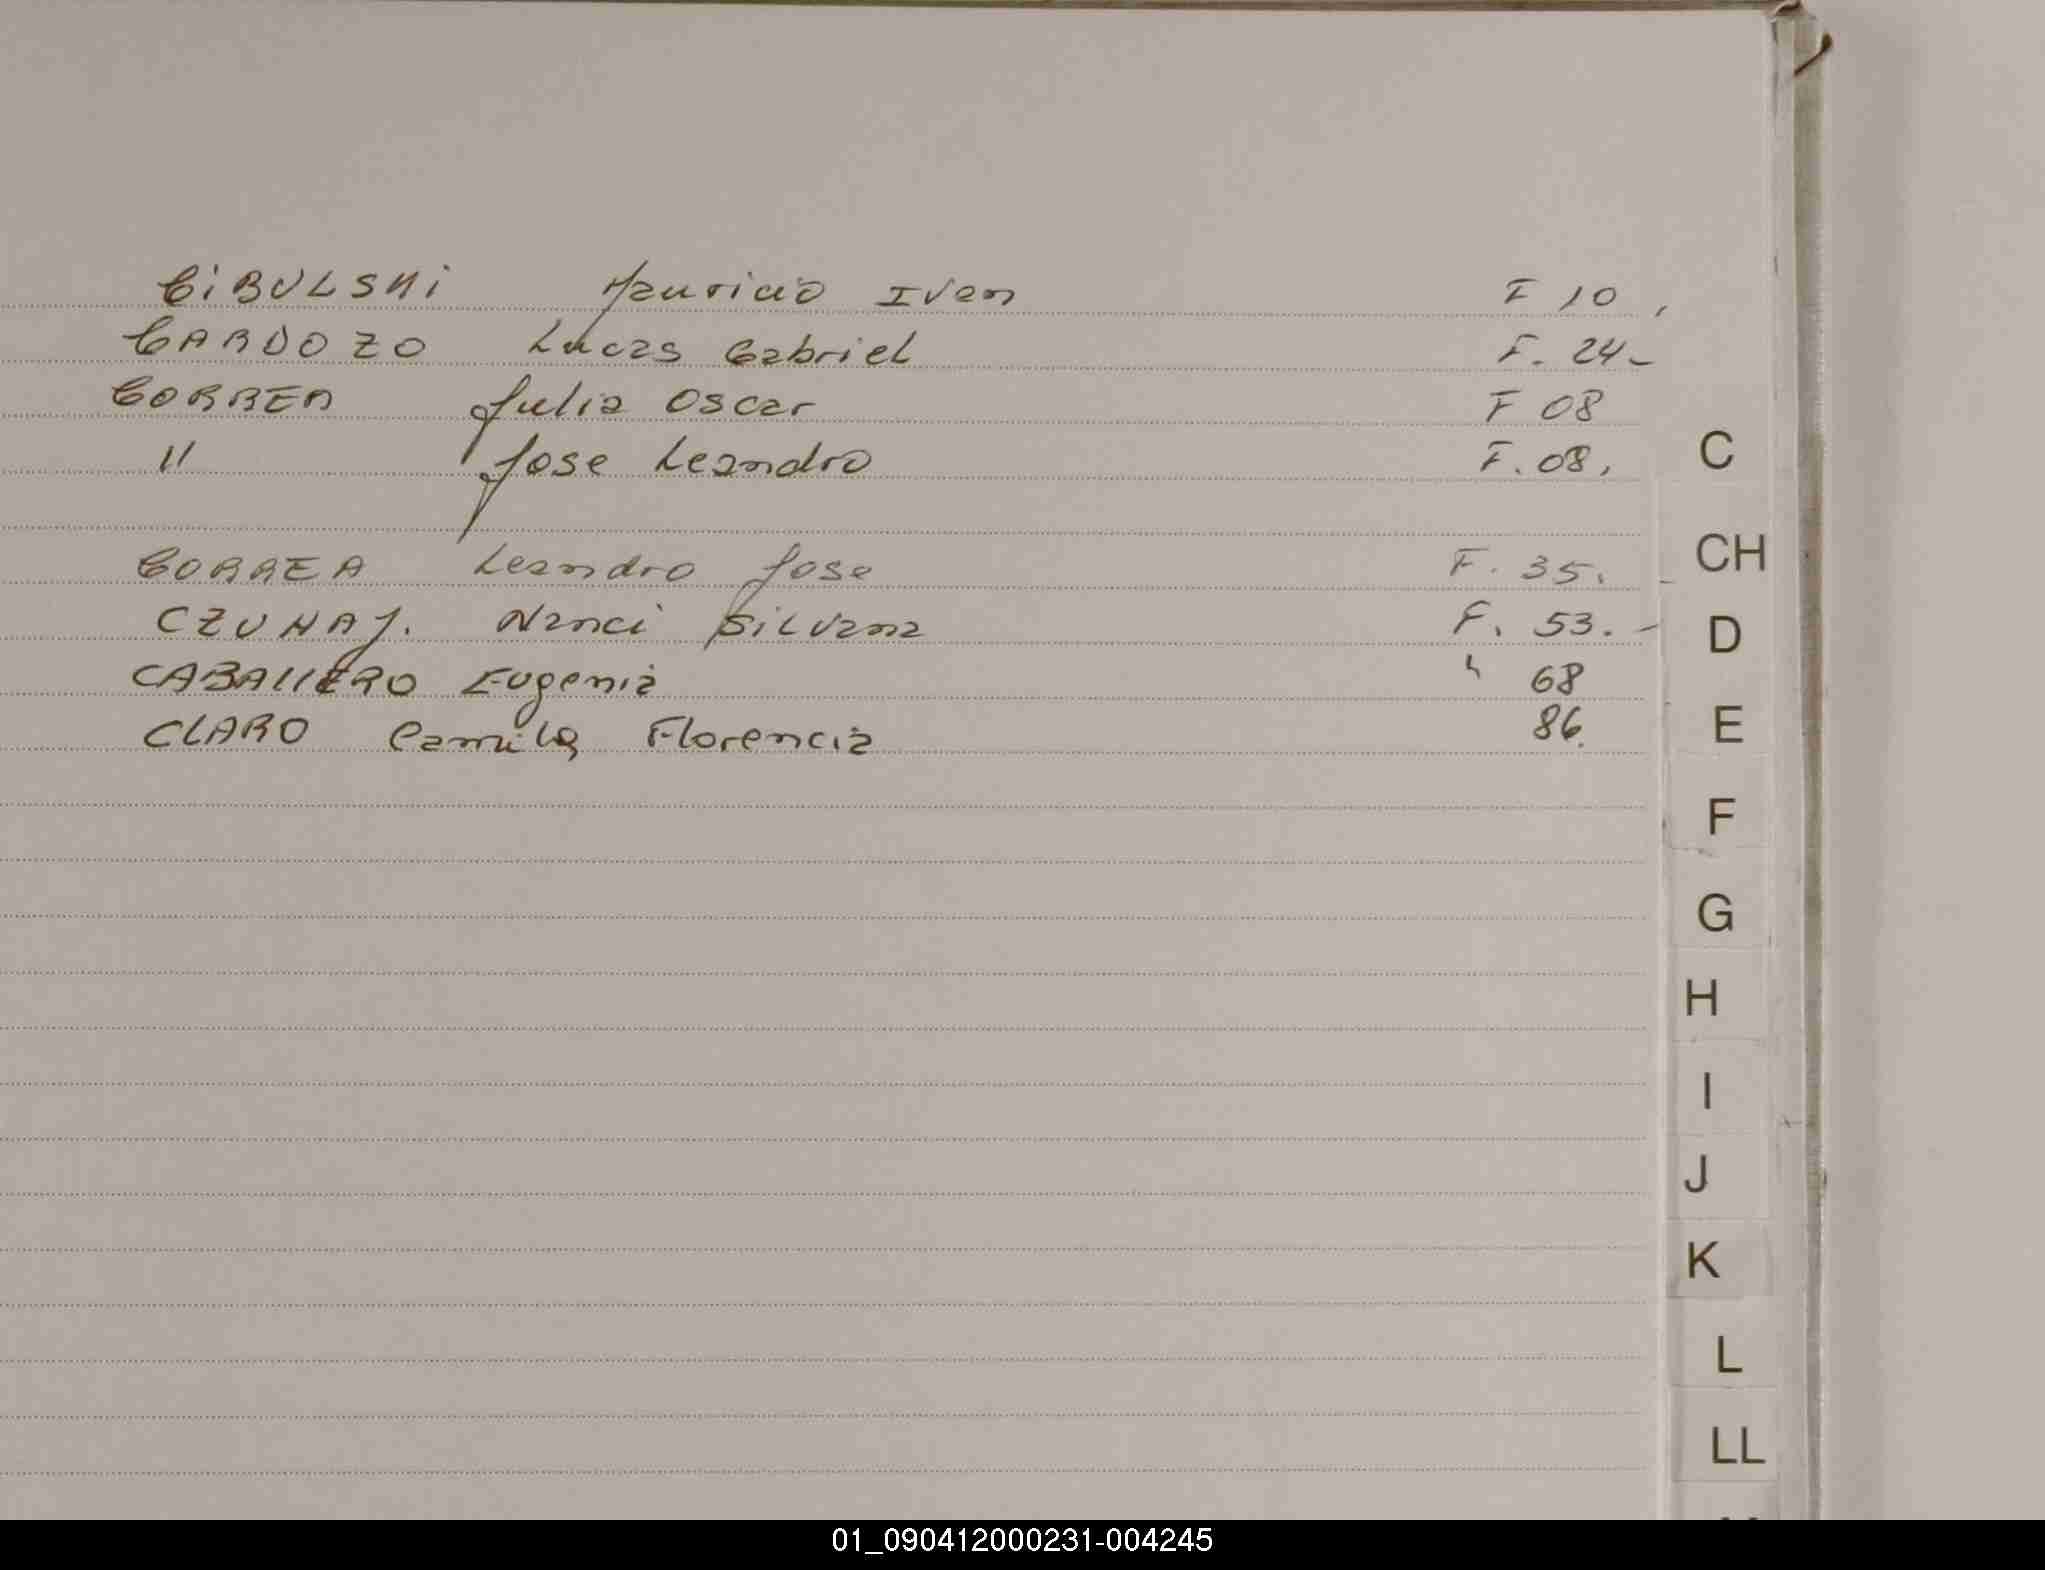 CiBULSKi Mauricio Ivan F 10,
CARDOZO Lucas Gabriel F. 24-
CORREA Julia Oscar F 08
" Jose Leandro F. 08,
CORREA Leandro Jose F. 35.
CZUHAJ. Nanci SiLvana F. 53. -
CABAllERO Eugenia " 68
CLARO Camila Florencia 86.
C
CH
D
E
F
G
H
I
J
K
L
LL
01_090412000231-004245